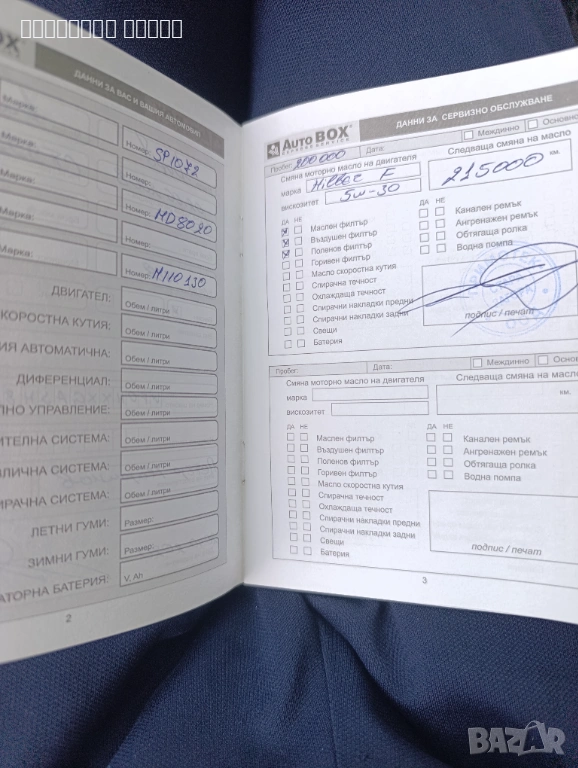 BOX
ДАННИ ЗА ВАС И ВАШИЯ АВТОМОБИЛ
Марка:
Номер: SP1072
Марка:
Номер: HD8020
Марка:
Номер:
Марка:
Номер: H110130
ДВИГАТЕЛ: Обем / литри
СКОРОСТНА КУТИЯ: Обем / литри
ИЯ АВТОМАТИЧНА: Обем / литри
ДИФЕРЕНЦИАЛ: Обем / литри
ЛНО УПРАВЛЕНИЕ: Обем / литри
ИТЕЛНА СИСТЕМА: Обем / литри
ЛИЧНА СИСТЕМА: Обем / литри
ИРАЧНА СИСТЕМА: Обем / литри
ЛЕТНИ ГУМИ: Размер:
ЗИМНИ ГУМИ: Размер:
АТОРНА БАТЕРИЯ: V. Ah
2
Auto BOX
ДАННИ ЗА СЕРВИЗНО ОБСЛУЖВАНЕ
Пробег: 200000 Дата: Междинно Основно
Смяна моторно масло на двигателя Следваща смяна на масло
марка
вискозитет 5w-30
215000 км.
ДА НЕ ДА НЕ
Маслен филтър Канален ремък
Въздушен филтър Ангренажен ремък
Поленов филтър Обтягаща ролка
Горивен филтър Водна помпа
Масло скоростна кутия
Спирачна течност
Охлаждаща течност
Спирачни накладки предни
Спирачни накладки задни
Свещи
Батерия
подпис / печат
Пробег: Дата: Междинно Основн
Смяна моторно масло на двигателя Следваща смяна на масло
марка
вискозитет
км.
ДА НЕ ДА НЕ
Маслен филтър Канален ремък
Въздушен филтър Ангренажен ремък
Поленов филтър Обтягаща ролка
Горивен филтър Водна помпа
Масло скоростна кутия
Спирачна течност
Охлаждаща течност
Спирачни накладки предни
Спирачни накладки задни
Свещи
Батерия
подпис / печат
3
BAZAR